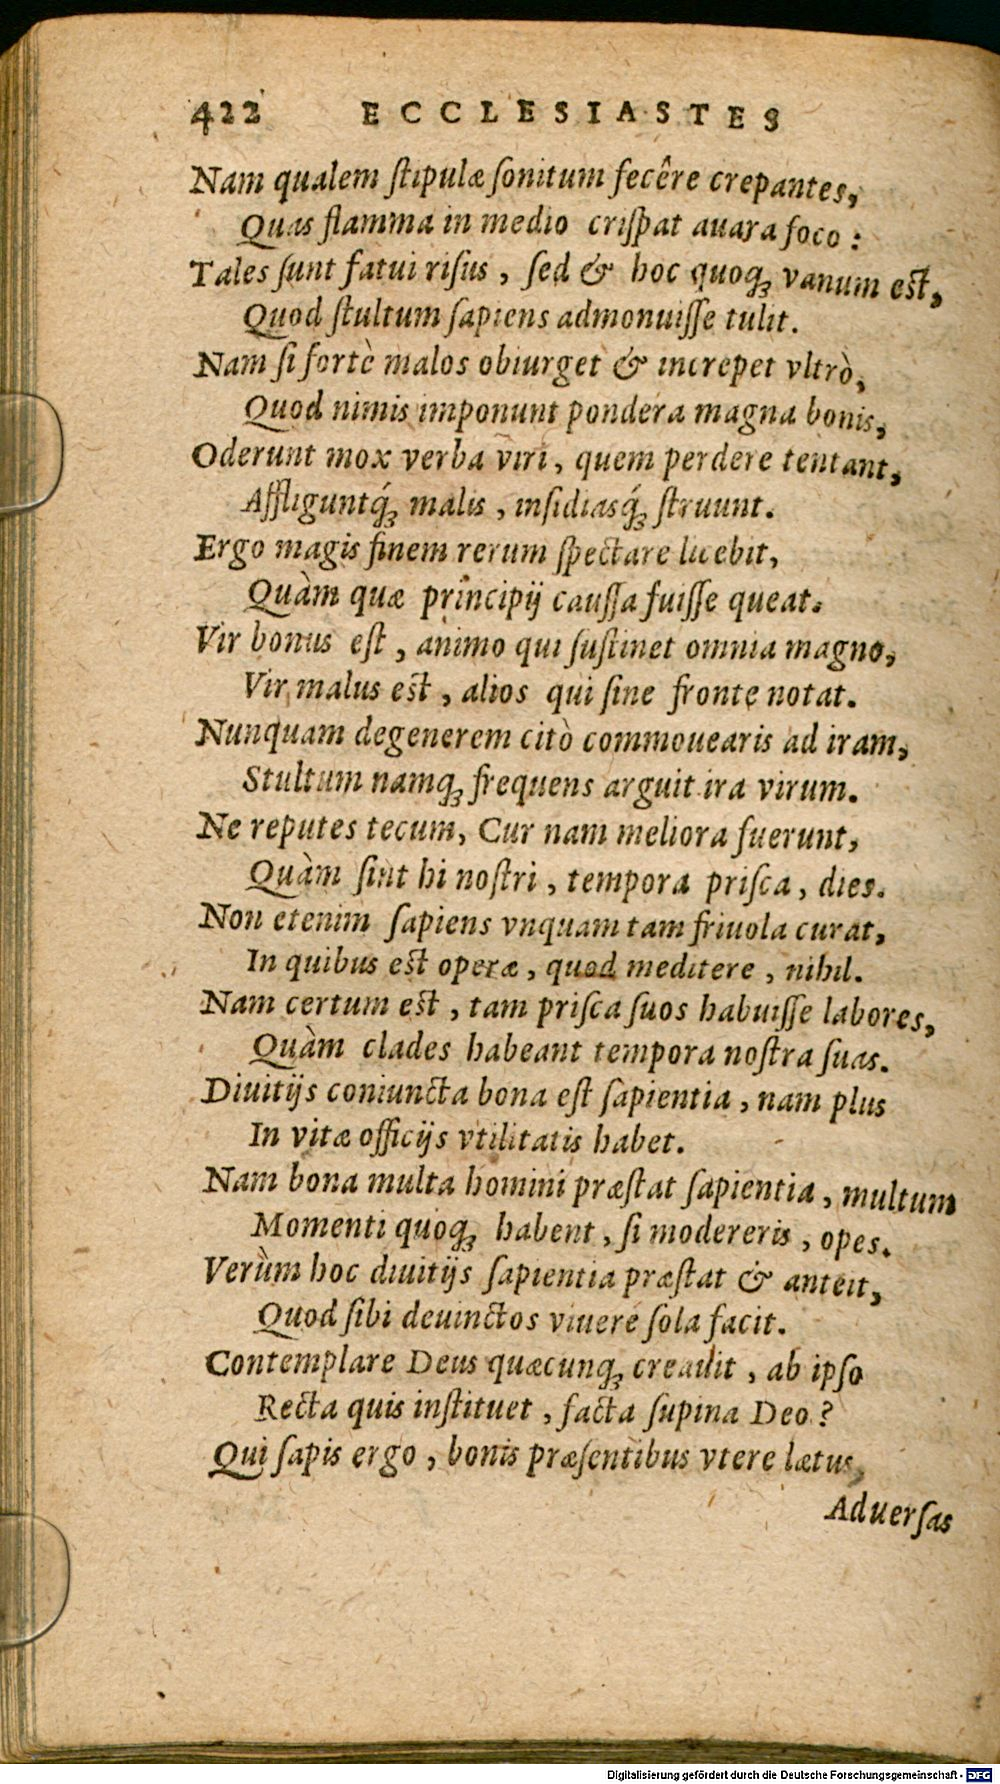 422 ECCLESIASTES
Nam qualem ſtipulæ ſonitum fecêre crepantes,
Quas flamma in medio criſpat auara foco :
Tales ſunt fatui riſus, ſed & hoc quoqꝫ vanum eſt,
Quod ſtultum ſapiens admonuiſſe tulit.
Nam ſi fortè malos obiurget & increpet vltrò,
Quod nimis imponunt pondera magna bonis,
Oderunt mox verba viri, quem perdere tentant,
Affliguntq́ꝫ malis, inſidiasq́ꝫ ſtruunt.
Ergo magis finem rerum ſpectare licebit,
Quàm quæ principij cauſſa fuiſſe queat.
Vir bonus eſt, animo qui ſuſtinet omnia magno,
Vir malus eſt, alios qui ſine fronte notat.
Nunquam degenerem citò commouearis ad iram,
Stultum namqꝫ frequens arguit ira virum.
Ne reputes tecum, Cur nam meliora fuerunt,
Quàm ſint hi noſtri, tempora priſca, dies.
Non etenim ſapiens vnquam tam friuola curat,
In quibus eſt operæ, quod meditere, nihil.
Nam certum eſt, tam priſca ſuos habuiſſe labores,
Quàm clades habeant tempora noſtra ſuas.
Diuitijs coniuncta bona eſt ſapientia, nam plus
In vitæ officijs vtilitatis habet.
Nam bona multa homini præſtat ſapientia, multum
Momenti quoqꝫ habent, ſi modereris, opes.
Verùm hoc diuitijs ſapientia præſtat & anteit,
Quod ſibi deuinctos viuere ſola facit.
Contemplare Deus quæcunqꝫ creauit, ab ipſo
Recta quis inſtituet, facta ſupina Deo?
Qui ſapis ergo, bonis præſentibus vtere lætus,
Aduerſas
Digitalisierung gefördert durch die Deutsche Forschungsgemeinschaft - DFG